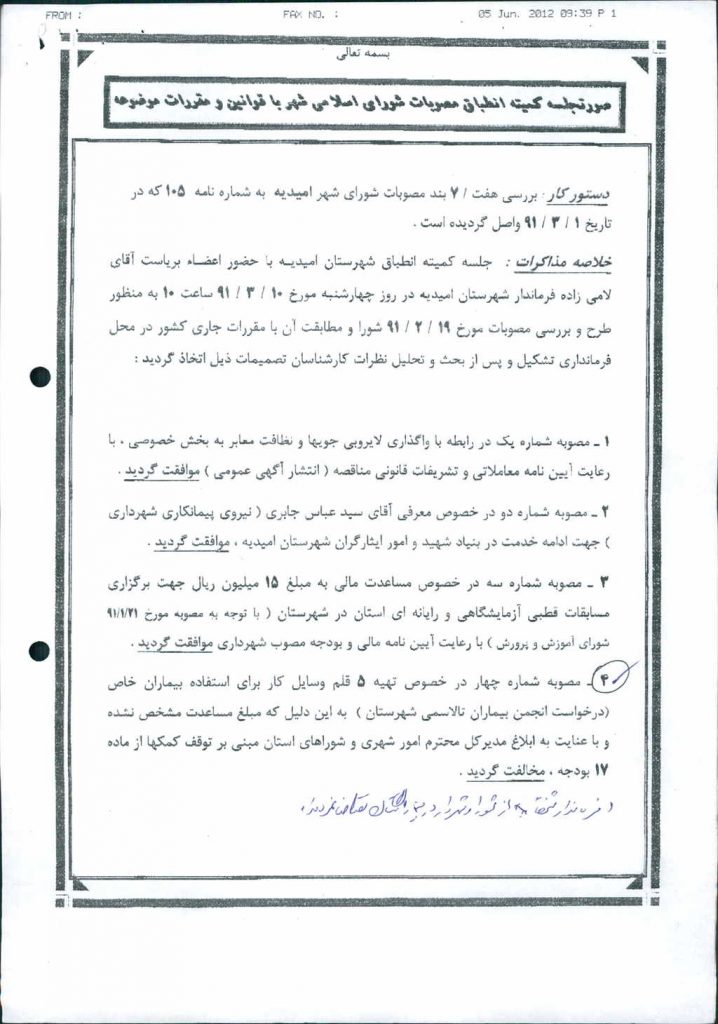 FROM : FAX NO. : 05 Jun. 2012 09:39 P 1
بسمه تعالی
صورتجلسه کمیته انطباق مصوبات شورای اسلامی شهر با قوانین و مقررات موضوعه
دستور کار : بررسی هفت / ۷ بند مصوبات شورای شهر امیدیه به شماره نامه ۱۰۵ که در
تاریخ ۱ / ۳ / ۹۱ واصل گردیده است .
خلاصه مذاکرات : جلسه کمیته انطباق شهرستان امیدیه با حضور اعضاء بریاست آقای
لامی زاده فرماندار شهرستان امیدیه در روز چهارشنبه مورخ ۱۰ / ۳ / ۹۱ ساعت ۱۰ به منظور
طرح و بررسی مصوبات مورخ ۱۹ / ۲ / ۹۱ شورا و مطابقت آن با مقررات جاری کشور در محل
فرمانداری تشکیل و پس از بحث و تحلیل نظرات کارشناسان تصمیمات ذیل اتخاذ گردید :
۱ ـ مصوبه شماره یک در رابطه با واگذاری لایروبی جویها و نظافت معابر به بخش خصوصی ، با
رعایت آیین نامه معاملاتی و تشریفات قانونی مناقصه ( انتشار آگهی عمومی ) موافقت گردید .
۲ ـ مصوبه شماره دو در خصوص معرفی آقای سید عباس جابری ( نیروی پیمانکاری شهرداری
) جهت ادامه خدمت در بنیاد شهید و امور ایثارگران شهرستان امیدیه ، موافقت گردید .
۳ ـ مصوبه شماره سه در خصوص مساعدت مالی به مبلغ ۱۵ میلیون ریال جهت برگزاری
مسابقات قطبی آزمایشگاهی و رایانه ای استان در شهرستان ( با توجه به مصوبه مورخ ۹۱/۱/۲۱
شورای آموزش و پرورش ) با رعایت آیین نامه مالی و بودجه مصوب شهرداری موافقت گردید .
۴ ـ مصوبه شماره چهار در خصوص تهیه ۵ قلم وسایل کار برای استفاده بیماران خاص
(درخواست انجمن بیماران تالاسمی شهرستان ) به این دلیل که مبلغ مساعدت مشخص نشده
و با عنایت به ابلاغ مدیرکل محترم امور شهری و شوراهای استان مبنی بر توقف کمکها از ماده
۱۷ بودجه ، مخالفت گردید .